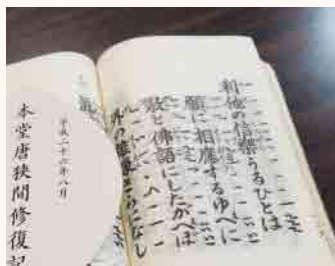 利他の信樂うるひとは
願に相應するゆへに
教と佛語にしたがへば
外の雜縁さらになし
平成二十六年八月
本堂唐狭間修復記